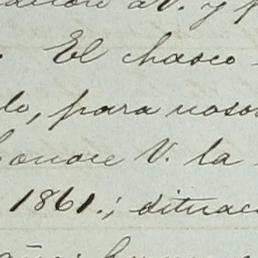 V. y
El chasco
lo, para noso
conoce V. la
1861.; situac